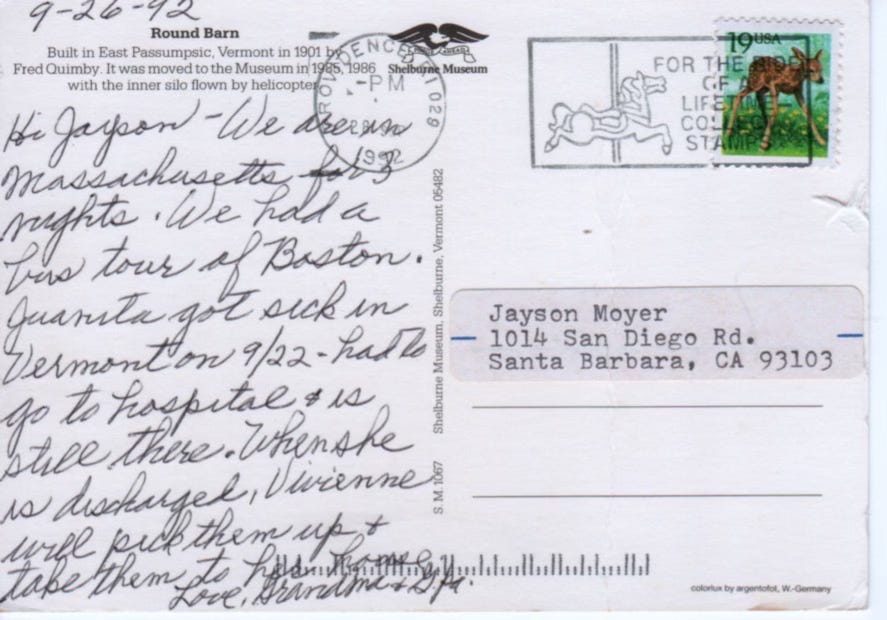 9-26-92
Round Barn
Built in East Passumpsic, Vermont in 1901 by
Fred Quimby. It was moved to the Museum in 1985, 1986
with the inner silo flown by helicopter
Shelburne Museum
PROVIDENCE RI 029
PM
1992
FOR THE RIDE
OF A
LIFETIME
COLLECT
STAMPS
19 USA
Hi Jayson - We are in
Massachusetts for 3
nights. We had a
bus tour of Boston.
Juanita got sick in
Vermont on 9/22 - had to
go to hospital & is
still there. When she
is discharged, Vivienne
will pick them up &
take them to her home.
Love, Grandma & G'pa.
Shelburne Museum, Shelburne, Vermont 05482
S.M. 1067
Jayson Moyer
1014 San Diego Rd.
Santa Barbara, CA 93103
colorlux by argentofot, W.-Germany